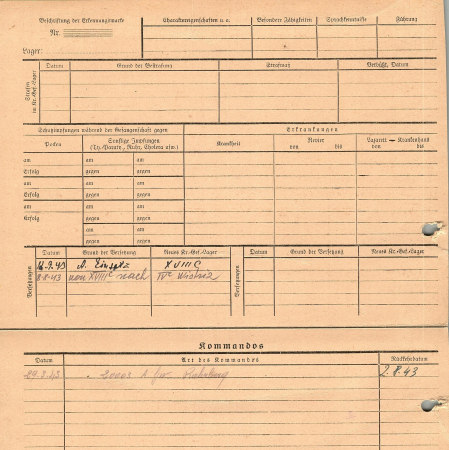 Beschriftung der Erkennungsmarke
Nr.
Lager:
Charaktereigenschaften u. a.
Besondere Fähigkeiten
Sprachkenntnisse
Führung
Strafen im Kr.-Gef.-Lager
Datum
Grund der Bestrafung
Strafmaß
Verbüßt, Datum
Schutzimpfungen während der Gefangenschaft gegen
Erkrankungen
Pocken
Sonstige Impfungen
(Ty.-Paraty., Ruhr, Cholera usw.)
Krankheit
Revier
von bis
Lazarett — Krankenhaus
von bis
am am am
Erfolg gegen gegen
am am am
Erfolg gegen gegen
am am am
Erfolg gegen gegen
am am am
Erfolg gegen gegen
am am
gegen gegen
Versetzungen
Datum Grund der Versetzung Neues Kr.-Gef.-Lager
.43 A. Einsatz XVIII C
8.8.43 von XVIII C nach IV
Versetzungen
Datum Grund der Versetzung Neues Kr.-Gef.-Lager
Kommandos
Datum Art des Kommandos Rückkehrdatum
A 2.8.43